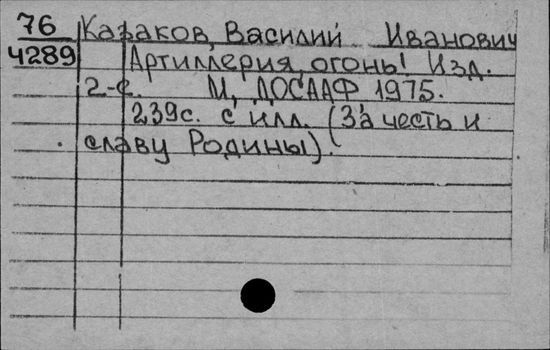 76 Казаков, Василий Иванович
4289 Артиллерия, огонь! Изд.
2-е. М, ДОСААФ 1975.
239с. с илл. (За честь и
славу Родины).